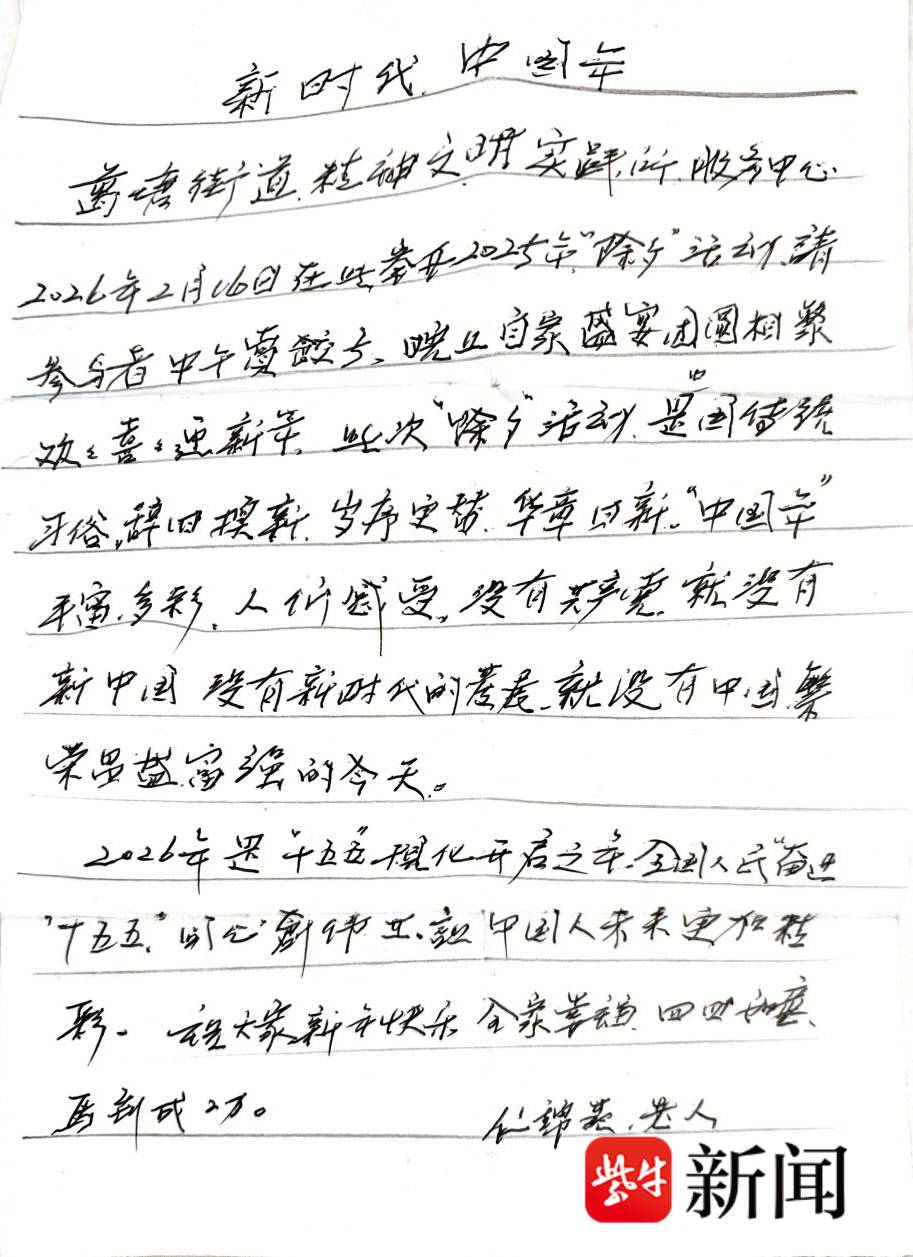 新时代,中国年
葛塘街道,精神文明实践所,服务中心
2026年2月16日在此举开2025年“除夕”活动,請
参与者中午囊餃子、晚上自家盛宴团圆相聚
欢々喜々迎新年。此次“除夕”活动,是中国传统
习俗,辞旧换新,岁序更替,华章日新。“中国年”
丰富多彩,人们感受,没有共产党,就没有
新中国 没有新时代的发展,就没有中国繁
荣昌盛富强的今天。
2026年是“十五五”规化开启之年,全国人民“奋进
“十五五,”同心創伟业、让中国人未来更加精
彩。祝大家新年快乐 全家喜
馬到成功。
老人
紫牛 新闻